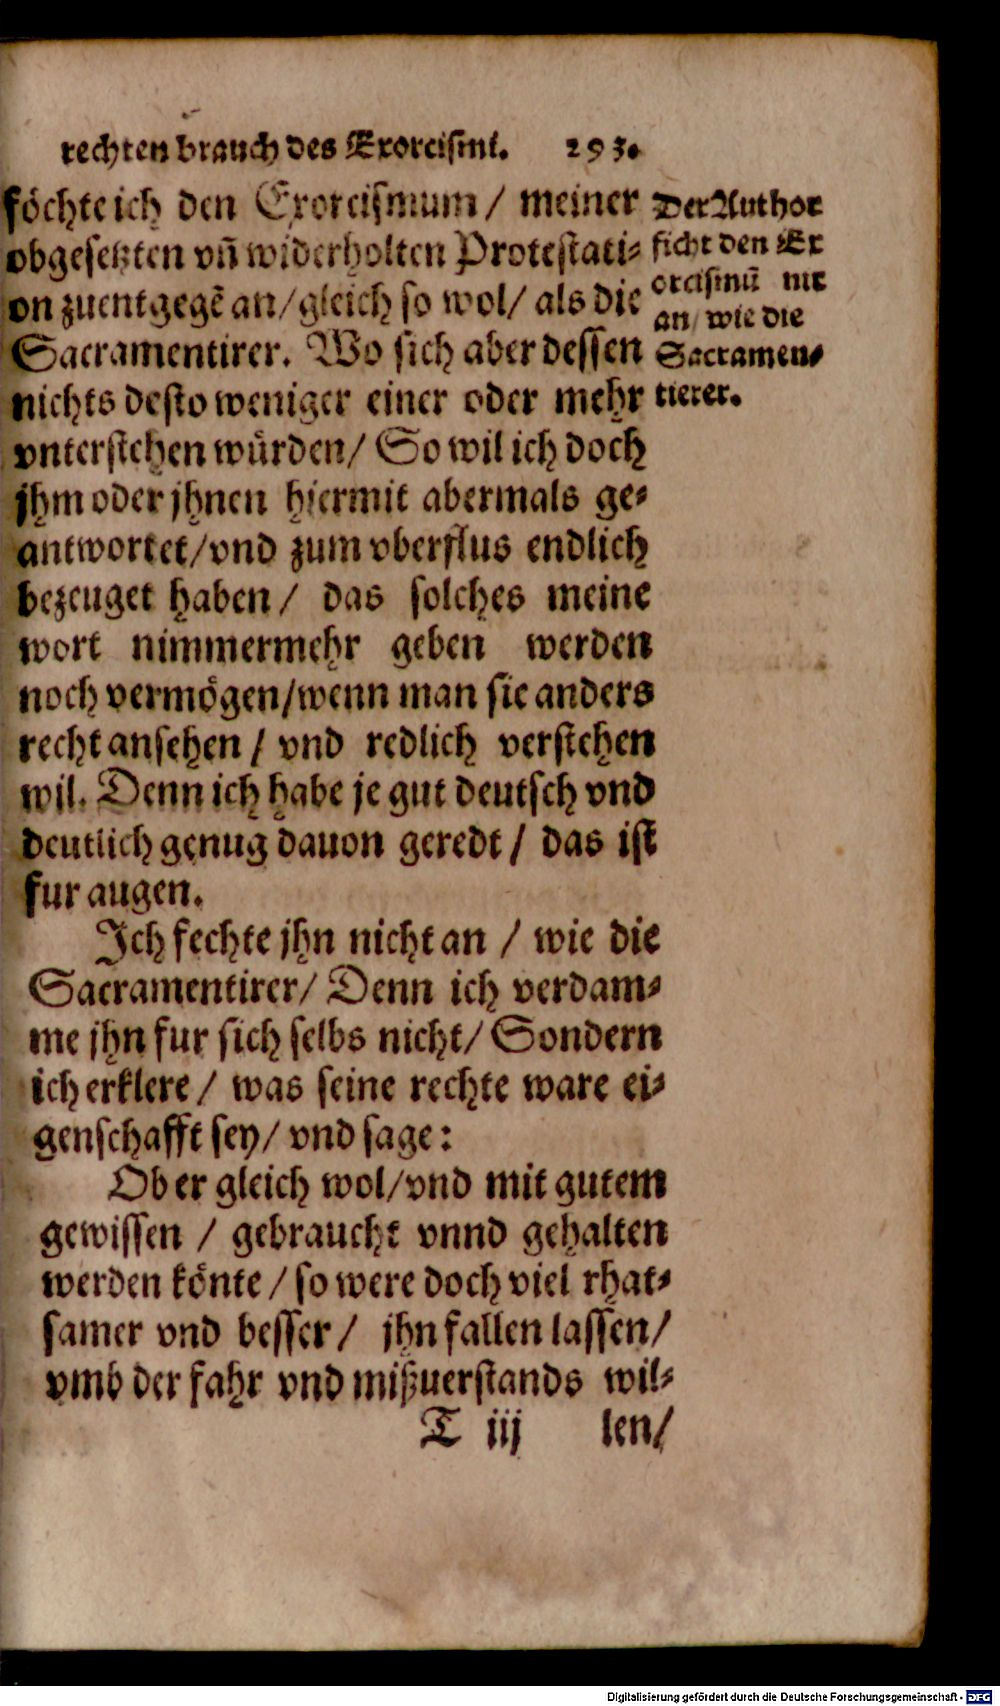 rechten brauch des Exorcismi. 293.
föchte ich den Exorcismum / meiner
obgesetzten vñ widerholten Protestati-
on zuentgegẽ an / gleich so wol / als die
Sacramentirer. Wo sich aber dessen
nichts desto weniger einer oder mehr
vnterstehen wůrden / So wil ich doch
jhm oder jhnen hiermit abermals ge-
antwortet / vnd zum vberflus endlich
bezeuget haben / das solches meine
wort nimmermehr geben werden
noch vermögen / wenn man sie anders
recht ansehen / vnd redlich verstehen
wil. Denn ich habe je gut deutsch vnd
deutlich genug dauon geredt / das ist
fur augen.
Der Author
ficht den Ex
orcismũ nit
an / wie die
Sacramen-
tierer.
Ich fechte jhn nicht an / wie die
Sacramentirer / Denn ich verdam-
me jhn fur sich selbs nicht / Sondern
ich erklere / was seine rechte ware ei-
genschafft sey / vnd sage:
Ob er gleich wol / vnd mit gutem
gewissen / gebraucht vnnd gehalten
werden könte / so were doch viel rhat-
samer vnd besser / jhn fallen lassen /
vmb der fahr vnd mißuerstands wil-
T iij len /
Digitalisierung gefördert durch die Deutsche Forschungsgemeinschaft - DFG